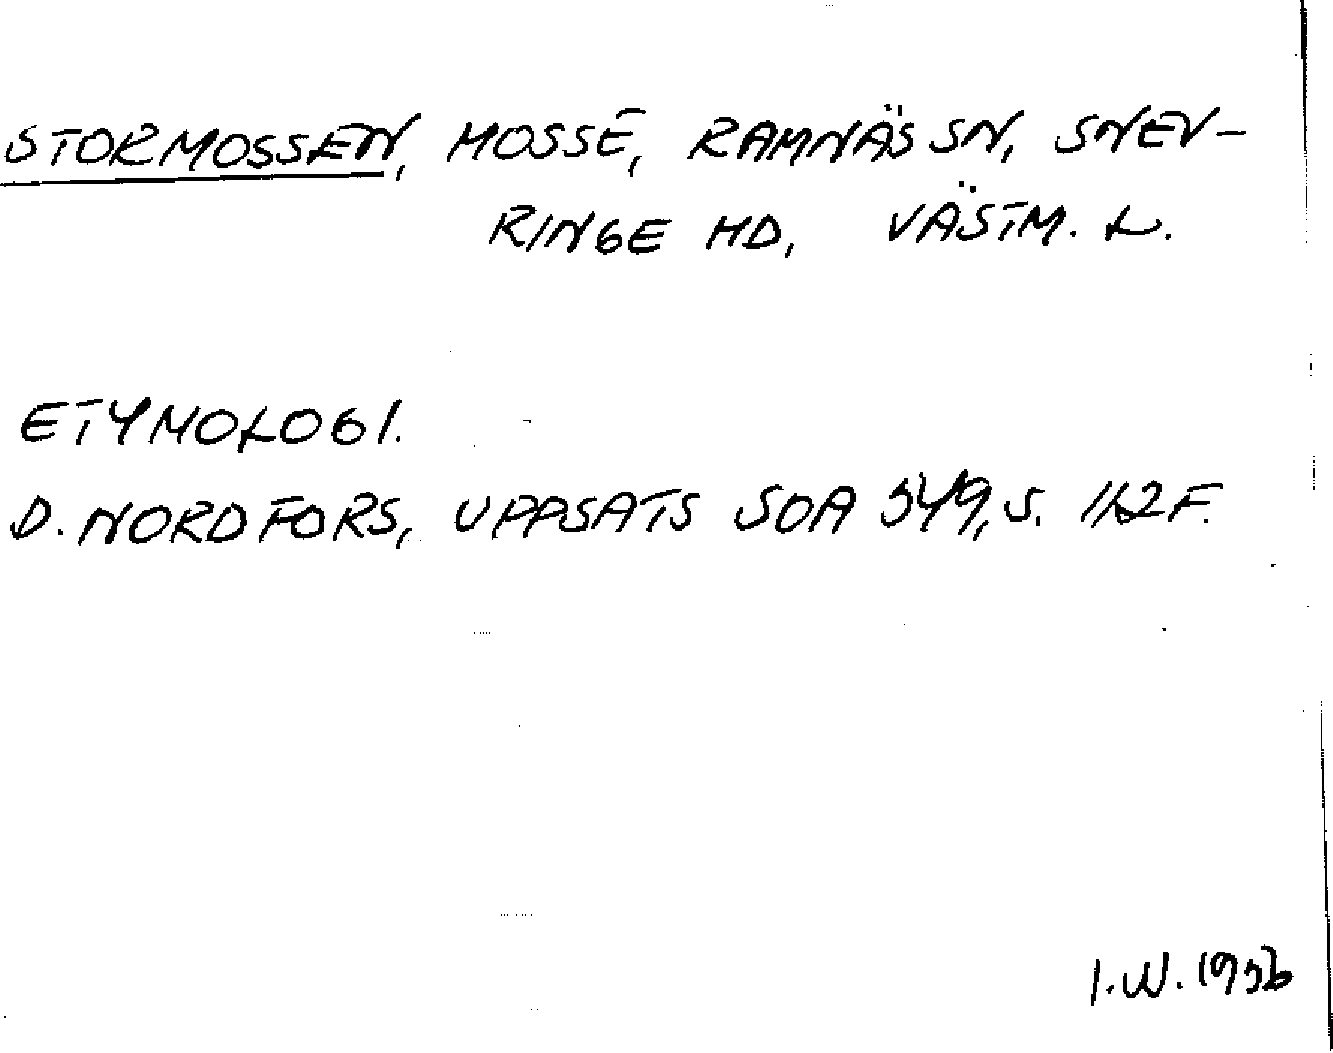 STORMOSSEN, MOSSE, RAMNÄS SN, SNEV-
RINGE HD, VÄSTM. L.
ETYMOLOGI.
D. NORDFORS, UPPSATS SOA 549, S. 112 F.
I.W. 1956